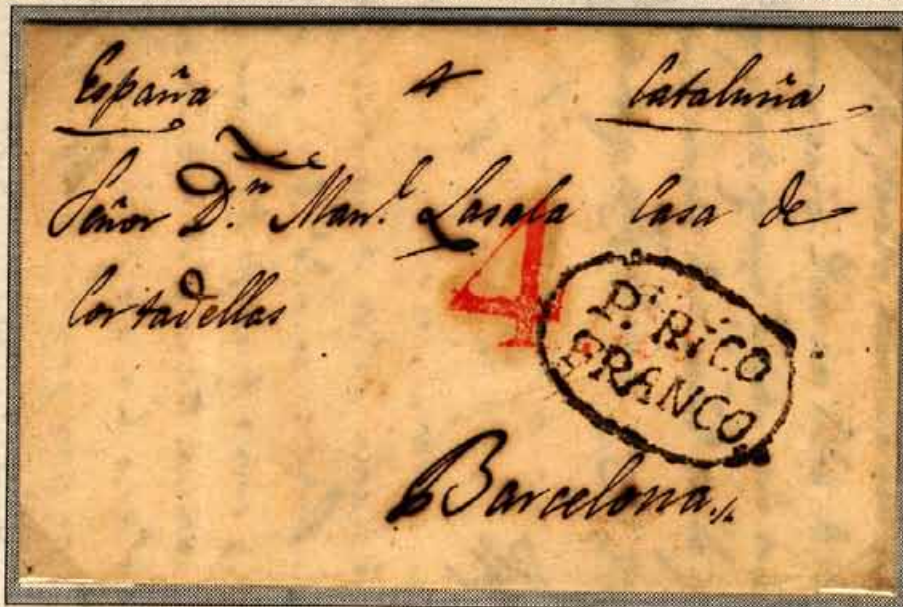 España 4 Cataluña
Señor D.n Man.l Lasala Casa de
Cortadellas
4
P.to RICO
FRANCO
Barcelona